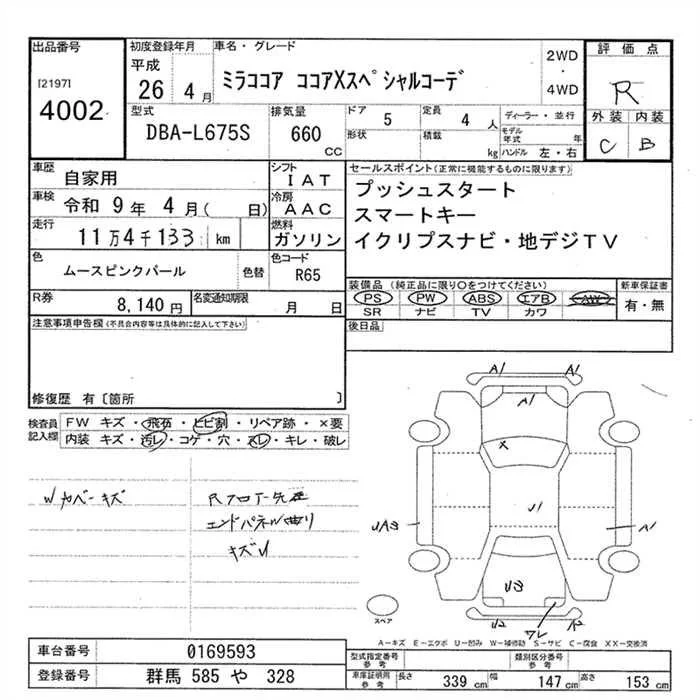 出品番号
[2197]
4002
初度登録年月
平成
26 4 月
車名・グレード
ミラココア ココアXスペシャルコーデ
2WD
・
4WD
評価点
R
外装 内装
C B
型式
DBA-L675S
排気量
660
CC
ドア 5
形状
定員 4 人
積載 kg
ディーラー・並行
モデル年式 年
ハンドル 左・右
車歴
自家用
シフト
IAT
車検
令和 9年 4月( 日)
冷房
AAC
走行
11万4千133 km
燃料
ガソリン
色
ムースピンクパール
色替
色コード
R65
R券
8,140 円
名変通知期限
月 日
セールスポイント(正常に機能するものに限ります)
プッシュスタート
スマートキー
イクリプスナビ・地デジTV
装備品 (純正品に限り○をつけてください)
PS PW ABS エアB AW
SR ナビ TV カワ
新車保証書
有・無
後日品
注意事項申告欄(不具合内容等は具体的に記入して下さい)
修復歴 有〔箇所 〕
検査員
記入欄
FW キズ・飛石・ヒビ割・リペア跡・×要
内装 キズ・汚レ・コゲ・穴・スレ・キレ・破レ
Wカバーキズ
エンドパネル曲り
キズU
A1 A2
A1
X
U1
UA3
A1
U3
U2
ワレ
スペア
A-キズ E-エクボ U-凹み W-補修跡 S-サビ C-腐食 XX-交換済
車台番号
0169593
登録番号
群馬 585 や 328
型式指定番号
参考
類別区分番号
参考
車庫証明用
参考
長さ 339 cm 幅 147 cm 高さ 153 cm